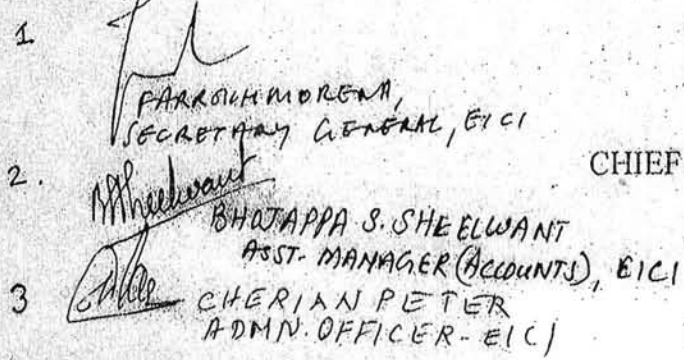 1
FARROKH MORENA,
SECRETARY GENERAL, EICI
2.
CHIEF
BSheelwant
BHOJAPPA S. SHEELWANT
ASST. MANAGER (ACCOUNTS), EICI
3
CHERIAN PETER
ADMN. OFFICER - EICI